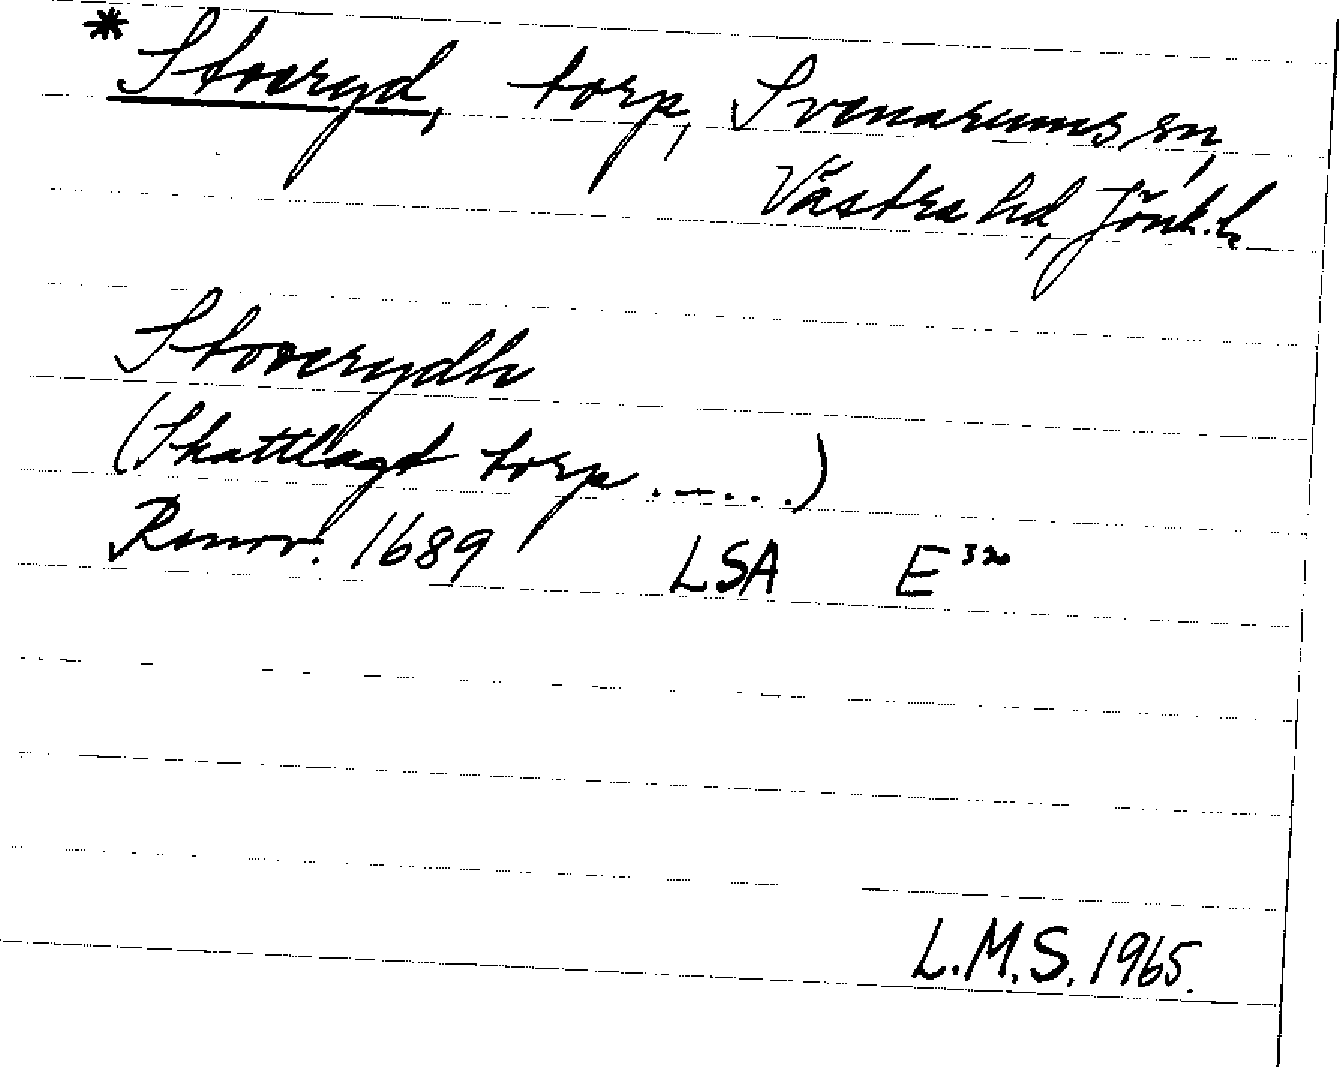 * Stoeryd, torp, Svenarums sn,
Västra hd, Jönk. l.
Stoverydh
(Skattlagt torp . – . . .)
Renov. 1689 LSA E
L.M.S. 1965.